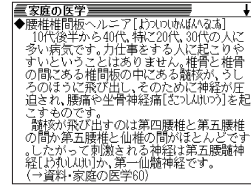 家庭の医学
◆腰椎椎間板ヘルニア[ようついついかんばんへるにあ]
10代後半から40代、特に20代、30代の人に
多い病気です。力仕事をする人に起こりや
すいということはありません。椎骨と椎骨
の間にある椎間板の中にある髄核が、うし
ろのほうに飛び出し、そのために神経が圧
迫され、腰痛や坐骨神経痛[ざこつしんけいつう]を起
こすものです。
髄核が飛び出すのは第四腰椎と第五腰椎
の間か第五腰椎と仙椎の間がほとんどです
。したがって刺激される神経は第五腰髄神
経[ようずいしんけい]か、第一仙髄神経です。
(→資料・家庭の医学60)